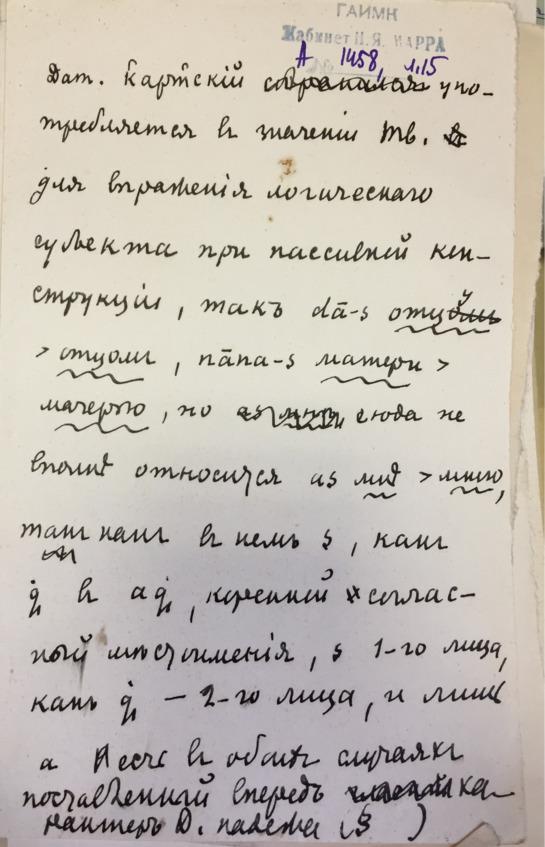 ГАИМК
Кабинет Н.Я. МАРРА
А 1458, л.15
Дат. Картскій упо-
требляется въ значеніи Тв.
для выраженія логическаго
субъекта при пассивной кон-
струкціи, такъ dā-s отцу
> отцомъ, nāna-s матери >
матерью, но сюда не
вполнѣ относится as мнѣ > мною,
такъ какъ въ немъ s, какъ
q̇ въ aq̇, коренной соглас-
ный мѣстоименія, s 1-го лица,
какъ q̇ – 2-го лица, и лишь
a есть въ обоихъ случаяхъ
поставленный впередъ ха-
рактеръ D. падежа (s )